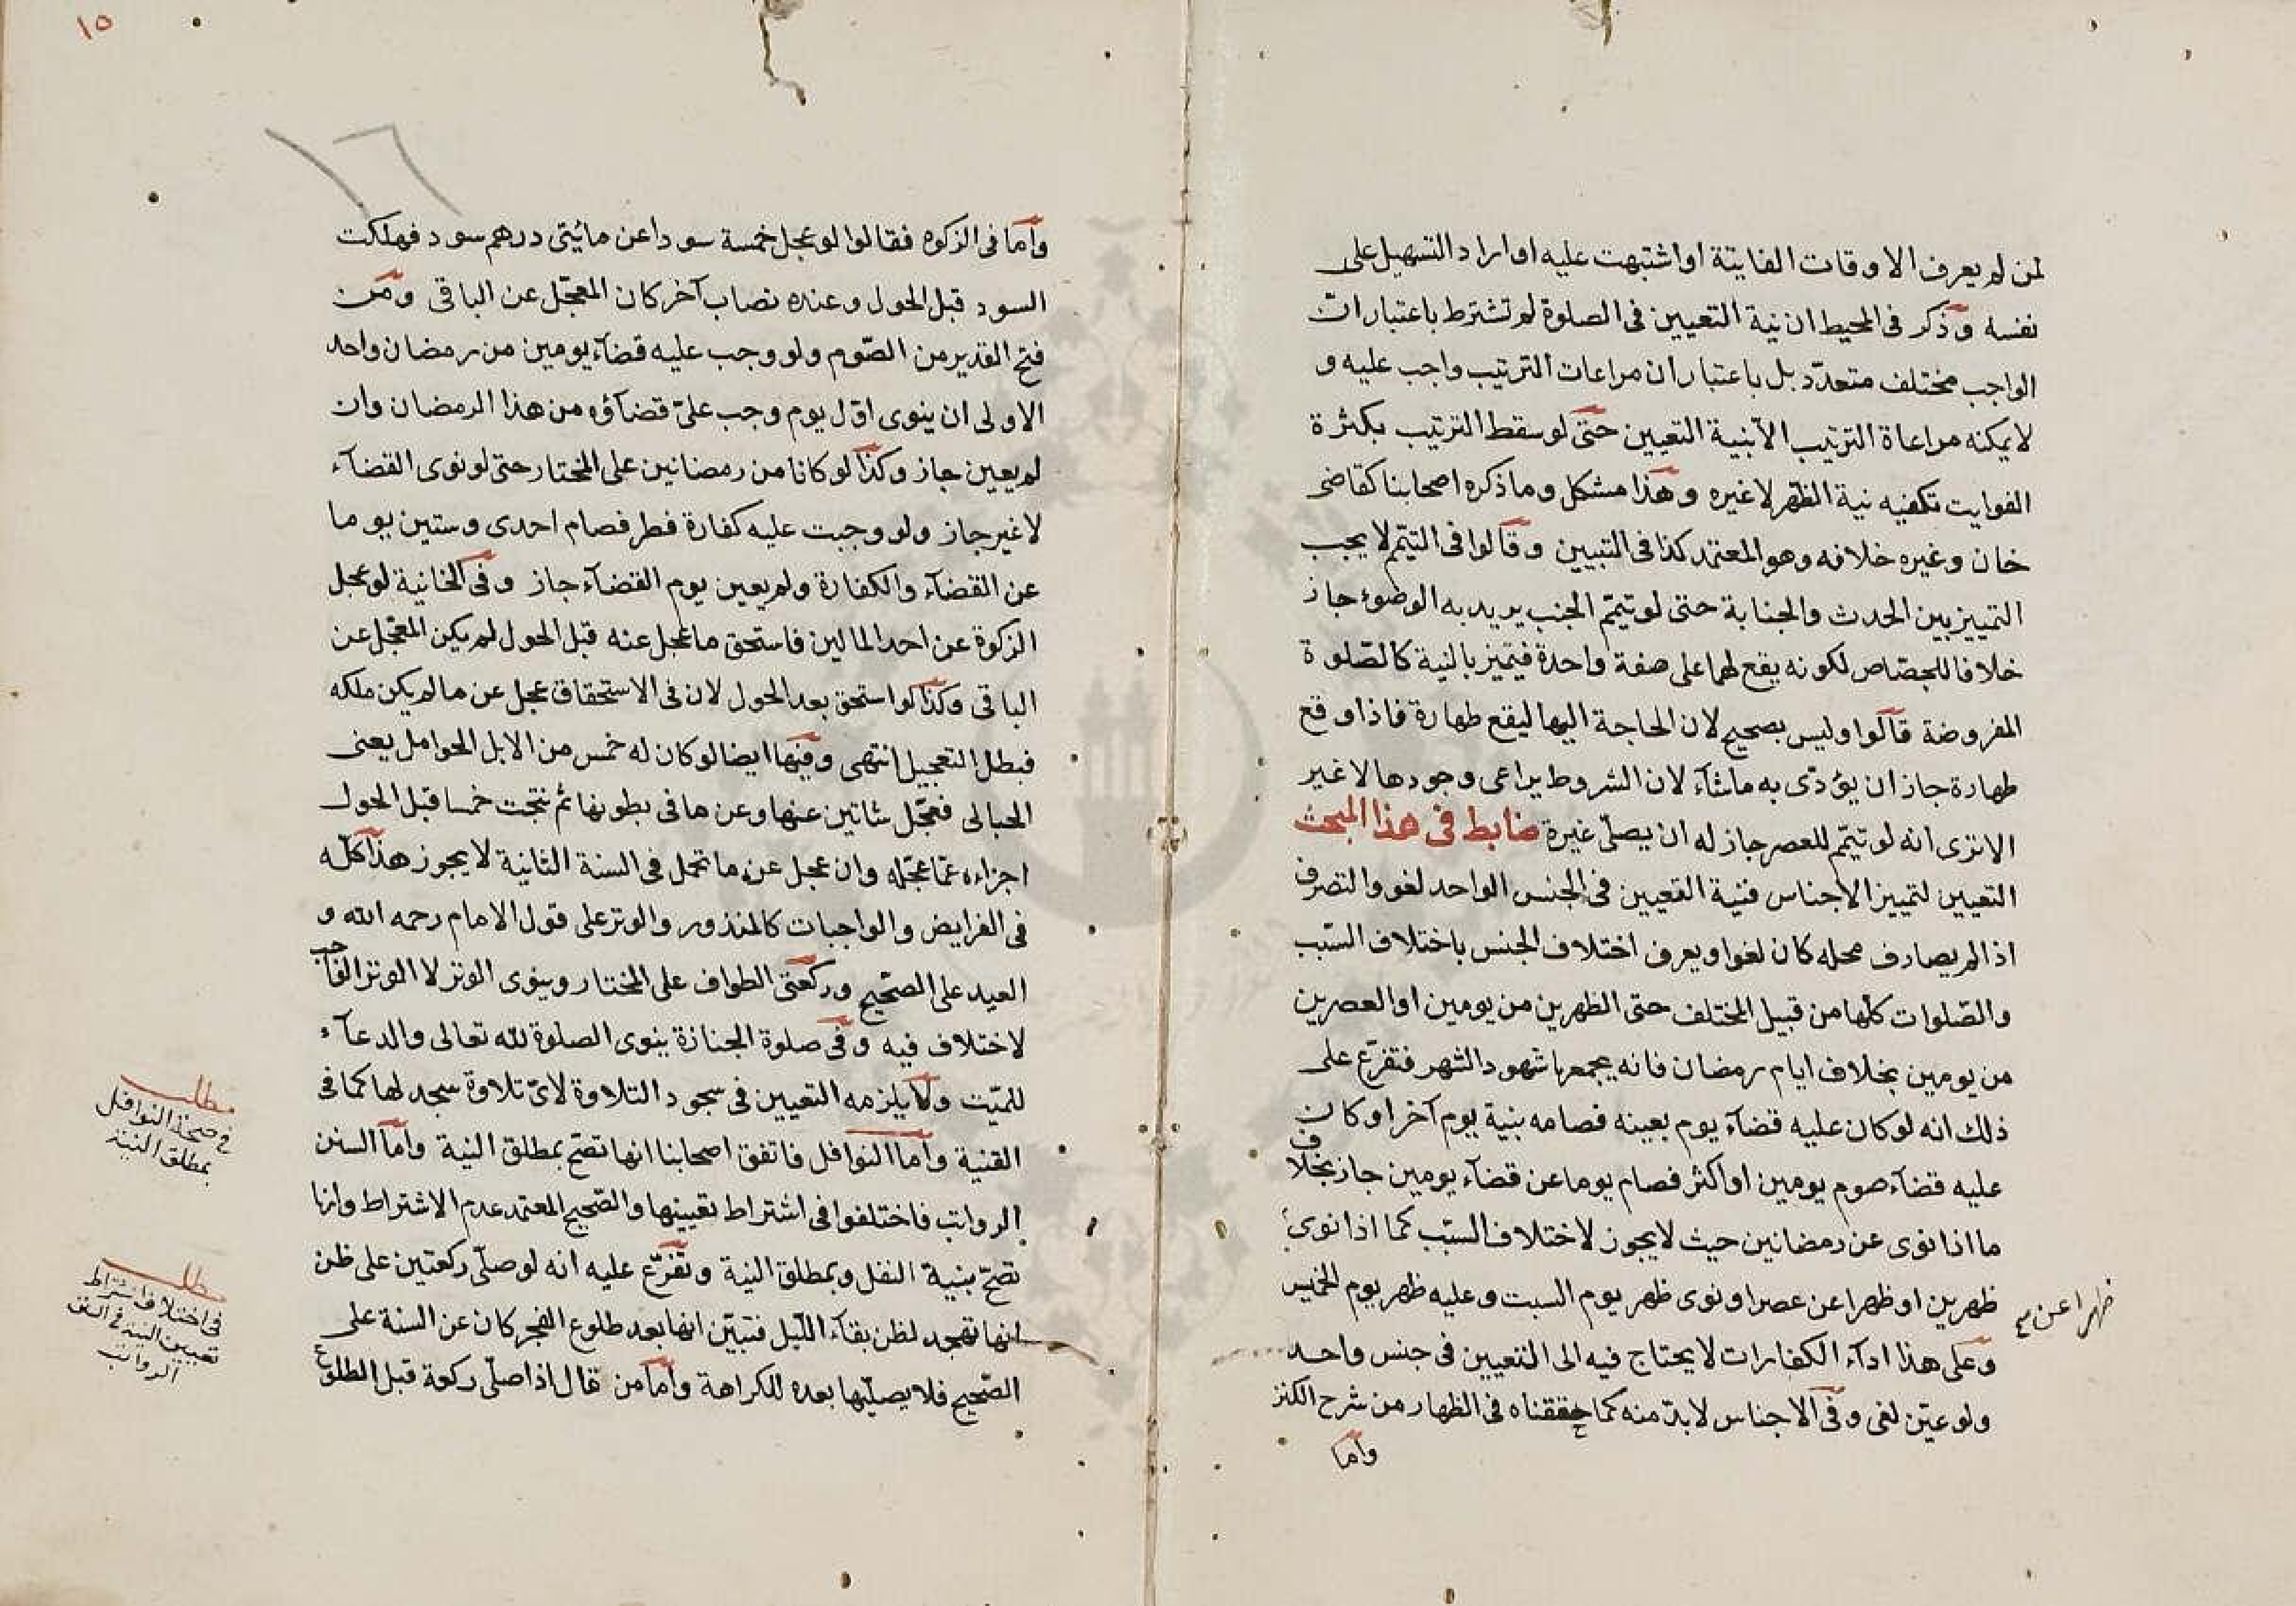 لمن لم يعرف الاوقات الفايتة او اشتبهت عليه او اراد التسهيل على
نفسه وذكر فى المحيط ان نية التعيين فى الصلوة لم تشترط باعتبار ان
الواجب مختلف متعدّد بل باعتبار ان مراعات الترتيب واجب عليه و
لا يمكنه مراعاة الترتيب الا بنية التعيين حتى لو سقط الترتيب بكثرة
الفوايت تكفيه نية الظهر لا غيره وهذا مشكل وما ذكره اصحابنا كقاضى
خان وغيره خلافه وهو المعتمد كذا فى التبيين وقالوا فى التيمّم لا يجب
التمييز بين الحدث والجنابة حتى لو تيمّم الجنب يريد به الوضوء جاز
خلافا للجصّاص لكونه يقع لهما على صفة واحدة فيتميز بالنية كالصّلوة
المفروضة قالوا وليس بصحيح لان الحاجة اليها ليقع طهارة فاذا وقع
طهارة جاز ان يؤدّى به ماشآء لان الشروط يراعى وجودها لا غير
الا ترى انه لو تيمّم للعصر جاز له ان يصلّى غيرة ضابط فى هذا المبحث
التعيين لتمييز الاجناس فنية التعيين فى الجنس الواحد لغو والتصرف
اذا لم يصادف محله كان لغوا ويعرف اختلاف الجنس باختلاف السّبب
والصّلوات كلّها من قبيل المختلف حتى الظهرين من يومين او العصرين
من يومين بخلاف ايام رمضان فانه يجمعها شهود الشهر فتفرّع على
ذلك انه لو كان عليه قضآء يوم بعينه فصامه بنية يوم آخر او كان
عليه قضآء صوم يومين او اكثر فصام يوما عن قضآء يومين جاز بخلاف
ما اذا نوى عن رمضانين حيث لا يجوز لاختلاف السّبب كما اذا نوى
ظهرين او ظهرا عن عصر او نوى ظهر يوم السبت وعليه ظهر يوم الخميس
ظهرا عن
وعلى هذا ادآء الكفارات لا يحتاج فيه الى التعيين فى جنس واحد
ولو عيّن لغى وفى الاجناس لا بدّ منه كما حققناه فى الظهار من شرح الكنز
واما
١٥
١٦
واما فى الزكوه فقالوا لو عجل خمسة سودا عن مائيتى درهم سود فهلكت
السود قبل الحول وعنده نصاب آخر كان المعجّل عن الباقى ومن
فتح القدير من الصّوم ولو وجب عليه قضآء يومين من رمضان واحد
الاولى ان ينوى اوّل يوم وجب علىّ قضآؤه من هذا الرمضان وان
لم يعين جاز وكذا لو كانا من رمضانين على المختار حتى لو نوى القضآء
لا غير جاز ولو وجبت عليه كفارة فطر فصام احدى وستين يوما
عن القضآء والكفارة ولم يعين يوم القضآء جاز وفى الخانية لو عجل
الزكوة عن احد المالين فاستحق ما عجل عنه قبل الحول لم يكن المعجّل عن
الباقى وكذا لو استحق بعد الحول لان فى الاستحقاق عجل عن مالم يكن ملكه
فبطل التعجيل انتهى وفيها ايضا لو كان له خمس من الابل الحوامل يعنى
الحبالى فعجّل شاتين عنها وعن ما فى بطونها ثم نتجت خمسا قبل الحول
اجزاءه عمّا عجّله وان عجل عن ما تحمل فى السنة الثانية لا يجوز هذا كلّه
فى الفرايض والواجبات كالمنذور والوتر على قول الامام رحمه الله و
العيد على الصّحيح وركعتى الطواف على المختار وينوى الوتر لا الوتر الواجب
لاختلاف فيه وفى صلوة الجنازة ينوى الصلوة لله تعالى والدعآء
للميّت ولا يلزمه التعيين فى سجود التلاوة لاىّ تلاوة سجد لها كما فى
القنية واما النوافل فاتفق اصحابنا انها تصحّ بمطلق النية واما السنن
الرواتب فاختلفوا فى اشتراط تعيينها والصّحيح المعتمد عدم الاشتراط وانها
تصحّ بنية النفل وبمطلق النية وتفرّع عليه انه لو صلّى ركعتين على ظن
انها تهجد لظن بقآء اللّيل فتبيّن انها بعد طلوع الفجر كان عن السنة على
الصّحيح فلا يصلّيها بعده للكراهة واما من قال اذا صلّى ركعة قبل الطلوع
مطلب
فى صحة النوافل
بمطلق النية
مطلب
فى اختلاف اشتراط
تعيين النية فى السنن
الرواتب